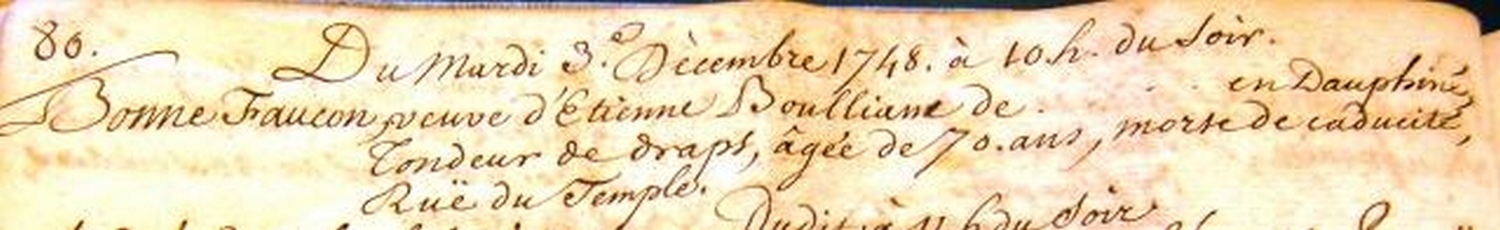 80.
Du Mardi 3.e Dècembre 1748. à 10 h. du Soir.
Bonne Faucon, veuve d'Etienne Boulliane de . . . en Dauphiné,
Tondeur de draps, âgée de 70. ans, morte de caducité,
Ruë du Temple.
Dudit à 11 h du Soir